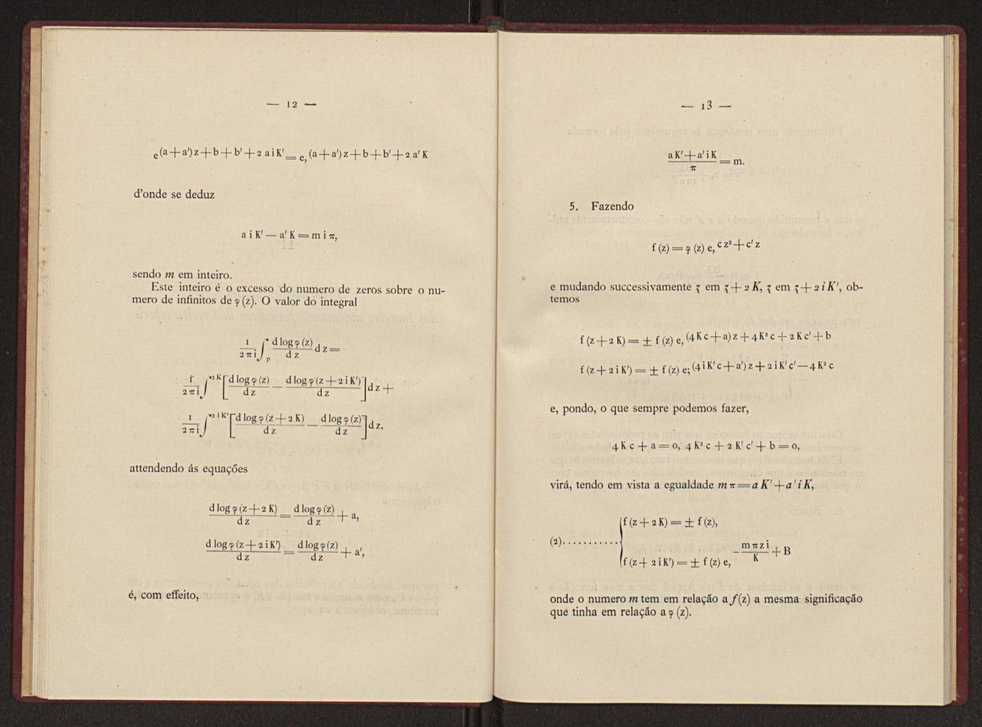 — 12 —
e (a + a') z + b + b' + 2 a i K' = e, (a + a') z + b + b' + 2 a' K
d'onde se deduz
a i K' — a' K = m i π,
sendo m em inteiro.
Este inteiro é o excesso do numero de zeros sobre o nu-
mero de infinitos de φ (z). O valor do integral
1/2πi ∫p d log φ (z)/dz dz =
1/2πi ∫2K [d log φ (z)/dz — d log φ (z + 2 i K')/dz] dz +
1/2πi ∫2iK' [d log φ (z + 2 K)/dz — d log φ (z)/dz] dz,
attendendo ás equações
d log φ (z + 2 K)/dz = d log φ (z)/dz + a,
d log φ (z + 2 i K')/dz = d log φ (z)/dz + a',
é, com effeito,
— 13 —
a K' + a' i K/π = m.
5. Fazendo
f (z) = φ (z) e, c z² + c' z
e mudando successivamente ζ em ζ + 2 K, ζ em ζ + 2 i K', ob-
temos
f (z + 2 K) = ± f (z) e, (4 K c + a) z + 4 K² c + 2 K c' + b
f (z + 2 i K') = ± f (z) e; (4 i K' c + a') z + 2 i K' c' — 4 K² c
e, pondo, o que sempre podemos fazer,
4 K c + a = o, 4 K² c + 2 K' c' + b = o,
virá, tendo em vista a egualdade m π = a K' + a' i K,
f (z + 2 K) = ± f (z),
(2)...........
f (z + 2 i K') = ± f (z) e, - mπzi/K + B
onde o numero m tem em relação a f (z) a mesma significação
que tinha em relação a φ (z).